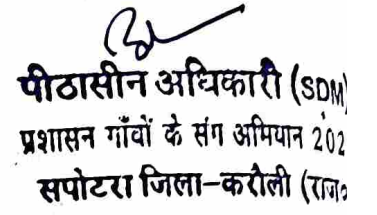 पीठासीन अधिकारी (SDM)
प्रशासन गाँवों के संग अभियान 202
सपोटरा जिला-करौली (राज०